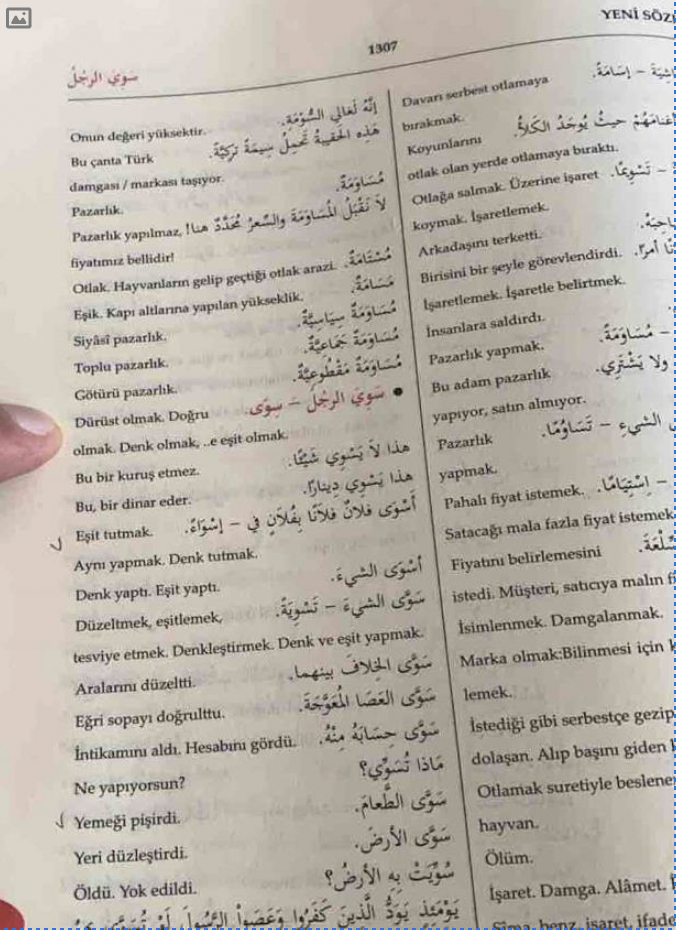 YENİ
1307
سَوِيَ الرجُلُ
Onun değeri yüksektir. إنَّهُ لَغَالي السُّوْمَةِ.
Bu çanta Türk هَذِه الحَقيبةُ تَحمِلُ سِيمَةً تركيَّةً.
damgası / markası taşıyor.
Pazarlık. مُسَاوَمَةٌ.
Pazarlık yapılmaz, لاَ نَقْبَلُ المُسَاوَمَةَ والسِّعرُ مُحَدَّدٌ هنا!
fiyatımız bellidir!
Otlak. Hayvanların gelip geçtiği otlak arazi. مُسْتَامَةٌ.
Eşik. Kapı altlarına yapılan yükseklik. مَسَامَةٌ.
Siyâsî pazarlık. مُسَاوَمَةٌ سِيَاسِيَّةٌ.
Toplu pazarlık. مُسَاوَمَةٌ جَمَاعِيَّةٌ.
Götürü pazarlık. مُسَاوَمَةٌ مَقْطُوعِيَّةٌ.
Dürüst olmak. Doğru سَوِيَ الرجُلُ – سِوًى. •
olmak. Denk olmak, ..e eşit olmak.
Bu bir kuruş etmez. هذا لاَ يَسْوِي شَيْئًا.
Bu, bir dinar eder. هذا يَسْوِي دِينارًا.
Eşit tutmak. أَسْوَى فلانٌ فلانًا بِفُلاَنٍ في – إسْوَاءً.
Aynı yapmak. Denk tutmak.
Denk yaptı. Eşit yaptı. أَسْوَى الشيءَ.
Düzeltmek, eşitlemek, سَوَّى الشيءَ – تَسْوِيَةً.
tesviye etmek. Denkleştirmek. Denk ve eşit yapmak.
Aralarını düzeltti. سَوَّى الخِلافَ بينهما.
Eğri sopayı doğrulttu. سَوَّى العَصَا المُعَوَّجَةَ.
İntikamını aldı. Hesabını gördü. سَوَّى حِسَابَهُ مِنْهُ.
Ne yapıyorsun? مَاذا تُسَوِّي؟
Yemeği pişirdi. سَوَّى الطَّعامَ.
Yeri düzleştirdi. سَوَّى الأرضَ.
Öldü. Yok edildi. سُوِّيَتْ بِه الأرضُ؟
يَوْمَئِذٍ يَوَدُّ الَّذِينَ كَفَرُوا وَعَصَوُا الرَّسُولَ لَوْ تُسَوَّى
Davarı serbest otlamaya – إسَامَةً.
bırakmak.
Koyunlarını حيثُ يُوجَدُ الكَلأُ.
otlak olan yerde otlamaya bıraktı.
Otlağa salmak. Üzerine işaret – تَسْوِيمًا.
koymak. İşaretlemek.
Arkadaşını terketti.
Birisini bir şeyle görevlendirdi. أمرًا.
İşaretlemek. İşaretle belirtmek.
İnsanlara saldırdı.
Pazarlık yapmak. – مُسَاوَمَةً.
Bu adam pazarlık ولا يَشْتَرِي.
yapıyor, satın almıyor.
Pazarlık الشيءِ – تَسَاوُمًا.
yapmak.
Pahalı fiyat istemek. – اِسْتِيَامًا.
Satacağı mala fazla fiyat istemek
Fiyatını belirlemesini
istedi. Müşteri, satıcıya malın
İsimlenmek. Damgalanmak.
Marka olmak:Bilinmesi için
lemek.
İstediği gibi serbestçe gezip
dolaşan. Alıp başını giden
Otlamak suretiyle beslene
hayvan.
Ölüm.
İşaret. Damga. Alâmet.
Sîma, benz, işaret,